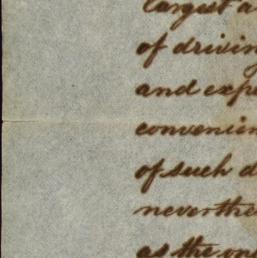 largest a
of drivin
and expe
convenien
of such d
neverthe
as the on